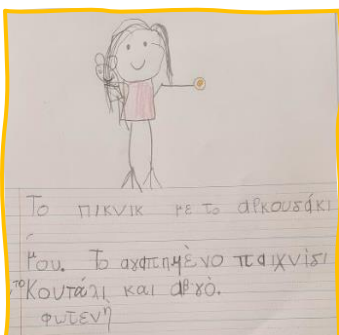 Το πικνικ με το αρκουδάκι
μου. Το αγαπημένο παιχνίδι
το κουτάλι και αβγό.
φωτενή